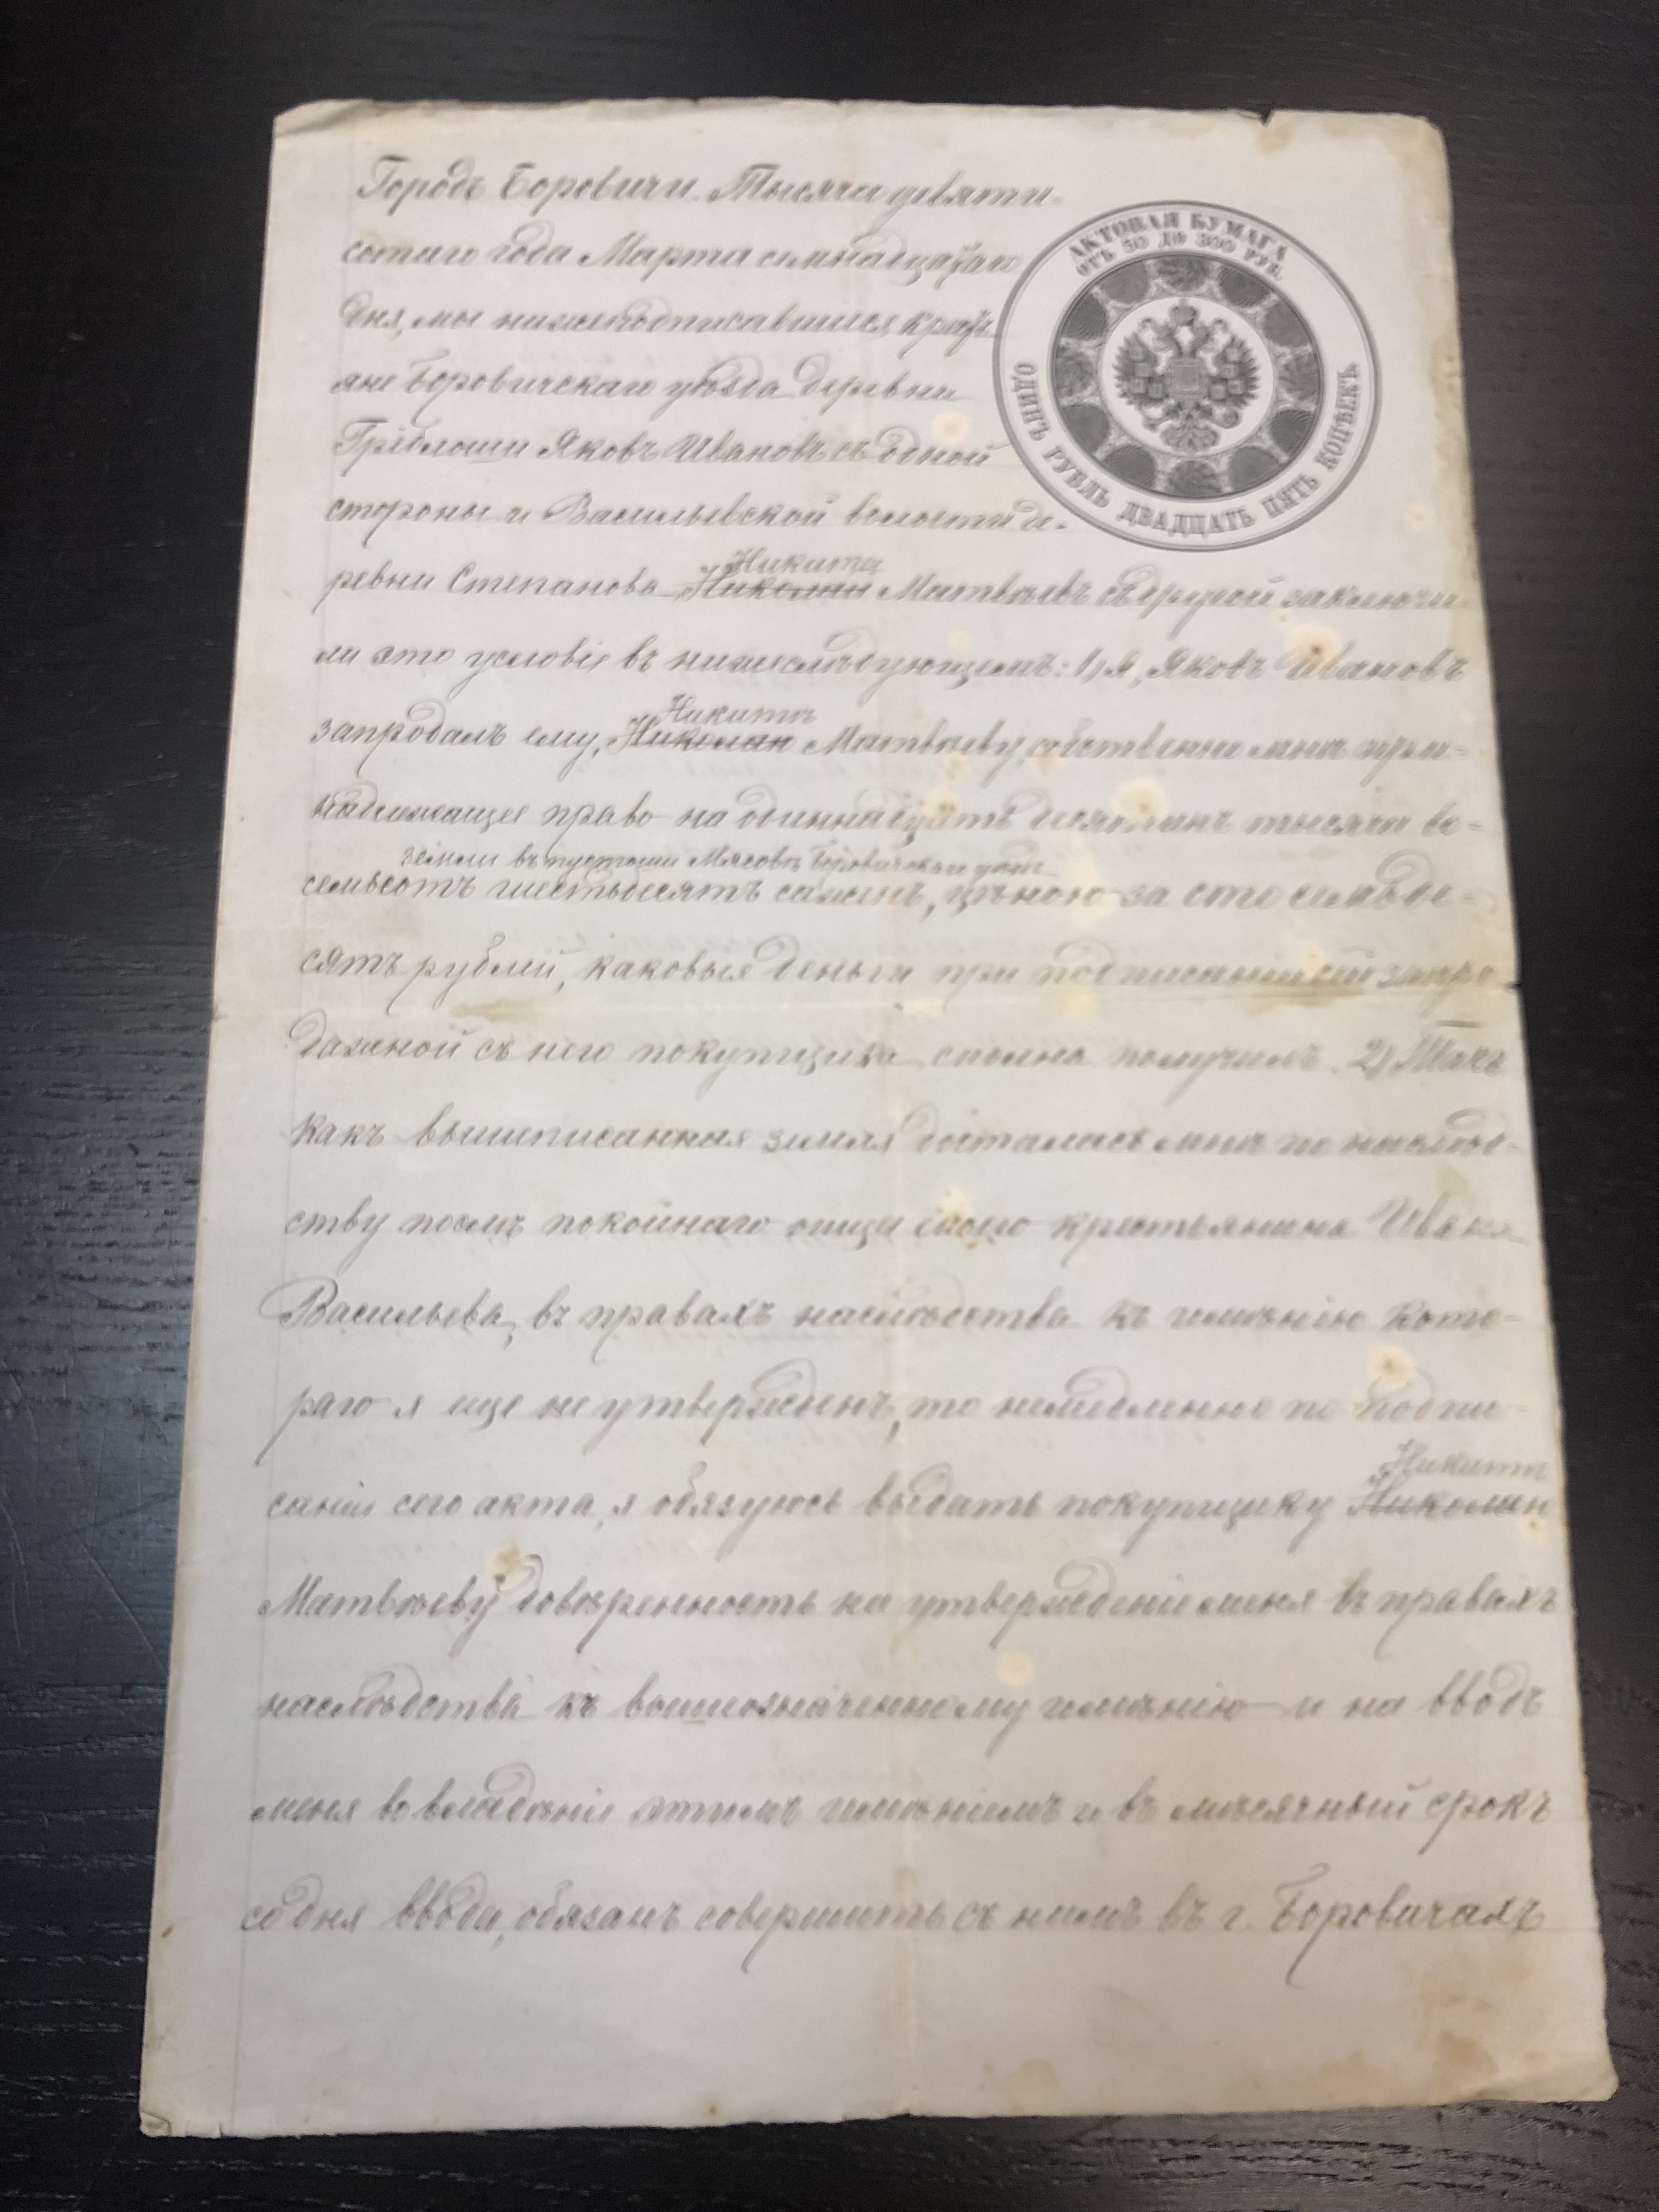 Городъ Боровичи. Тысяча девяти-
сотаго года Марта семнадцатаго
дня, мы нижеподписавшиеся крестъ
яне Боровичскаго уѣзда деревни
Яковъ Ивановъ съ одной
стороны и Васильевской волости де-
Никита
ревни Степанова Николай Матвѣевъ съ другой заключи-
ли это условіе въ нижеслѣдующемъ: 1) Я, Яковъ Ивановъ
Никитѣ
запродалъ ему, Николаю Матвѣеву, собственно мнѣ при-
надлежащее право на одиннадцать десятинъ тысяча во-
земли въ пустоши Боровичскаго уѣзда
семьсотъ шестьдесятъ сажень, цѣною за сто семьде-
сятъ рублей, каковыя деньги при подписаніи сей запро
дажной съ него покупщика сполна получилъ. 2) Такъ
какъ вышеписанная земля досталась мнѣ по наслѣд-
ству послѣ покойнаго отца моего крестьянина Ивана
Васильева, въ правахъ наслѣдства къ имѣнію кото-
раго я еще не утвержденъ, то немедленно по подпи-
Никитѣ
саніи сего акта, я обязуюсь выдать покупщику Николаю
Матвѣеву довѣренность на утвержденіе меня въ правахъ
наслѣдства къ вышеозначенному имѣнію и на вводъ
меня во владѣніе этимъ имѣніемъ и въ мѣсячный срокъ
со дня ввода, обязанъ совершить съ нимъ въ г. Боровичахъ
АКТОВАЯ БУМАГА
ОТЪ 50 ДО 300 РУБ.
ОДИНЪ РУБЛЬ ДВАДЦАТЬ ПЯТЬ КОПѢЕКЪ